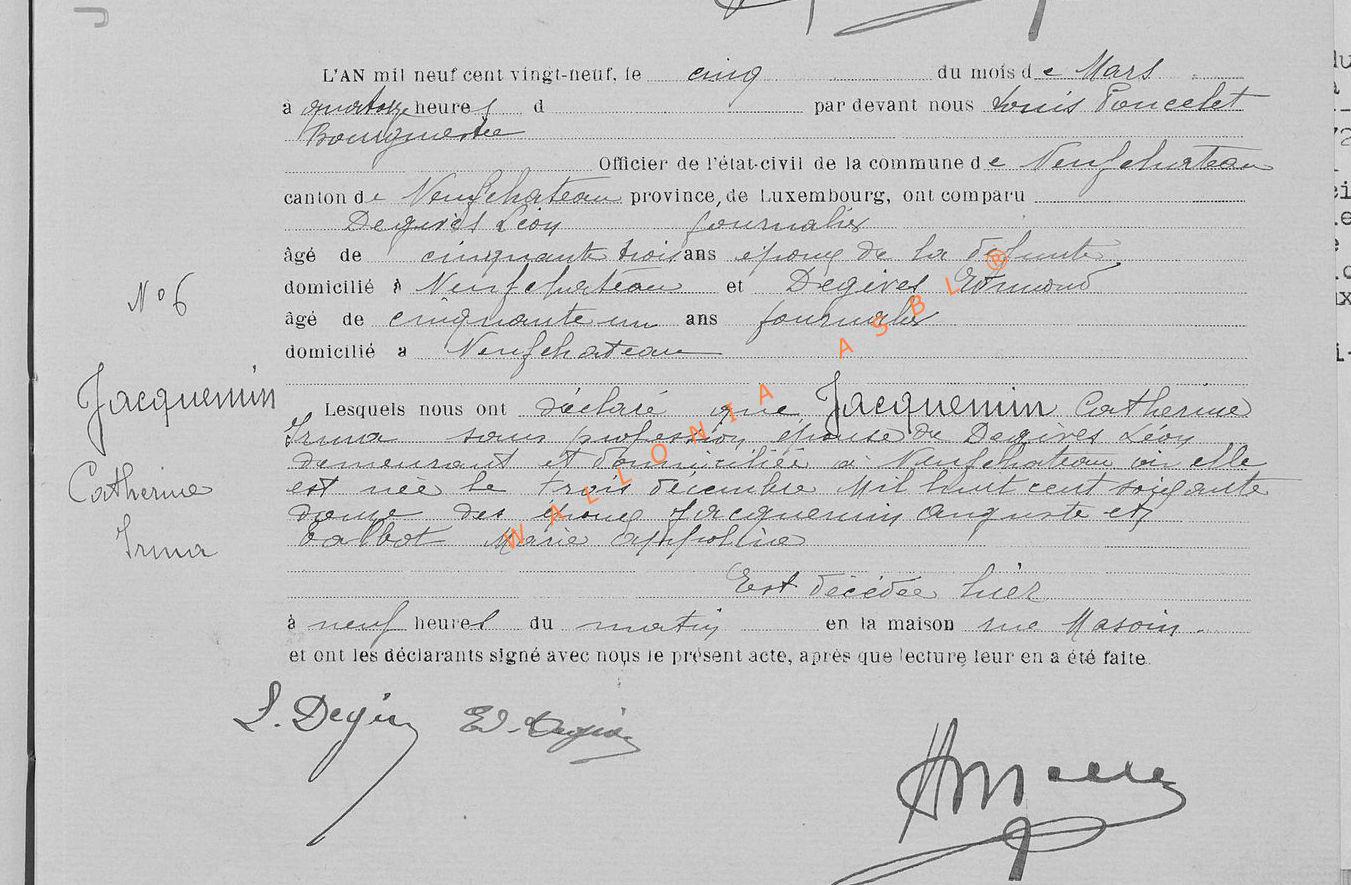 L'AN mil neuf cent vingt-neuf, le cinq du mois de Mars
à quatorze heures d par devant nous Louis Poncelet
Bourgmestre
Officier de l'état-civil de la commune de Neufchateau
canton de Neufchateau province de Luxembourg, ont comparu
Degives Léon journalier
âgé de cinquante trois ans époux de la défunte
domicilié à Neufchateau et Degives Edmond
âgé de cinquante un ans journalier
domicilié a Neufchateau
N° 6
Jacquemin
Catherine
Irma
Lesquels nous ont déclaré que Jacquemin Catherine
Irma sans profession épouse de Degives Léon
demeurant et domiciliée à Neufchateau où elle
est née le trois décembre mil huit cent soixante
douze des époux Jacquemin Auguste et
Talbot Marie Appoline
Est décédée hier
à neuf heures du matin en la maison rue Masoin
et ont les déclarants signé avec nous le présent acte, après que lecture leur en a été faite.
L. Degives Ed. Degives
WALLONIA ASBL ®